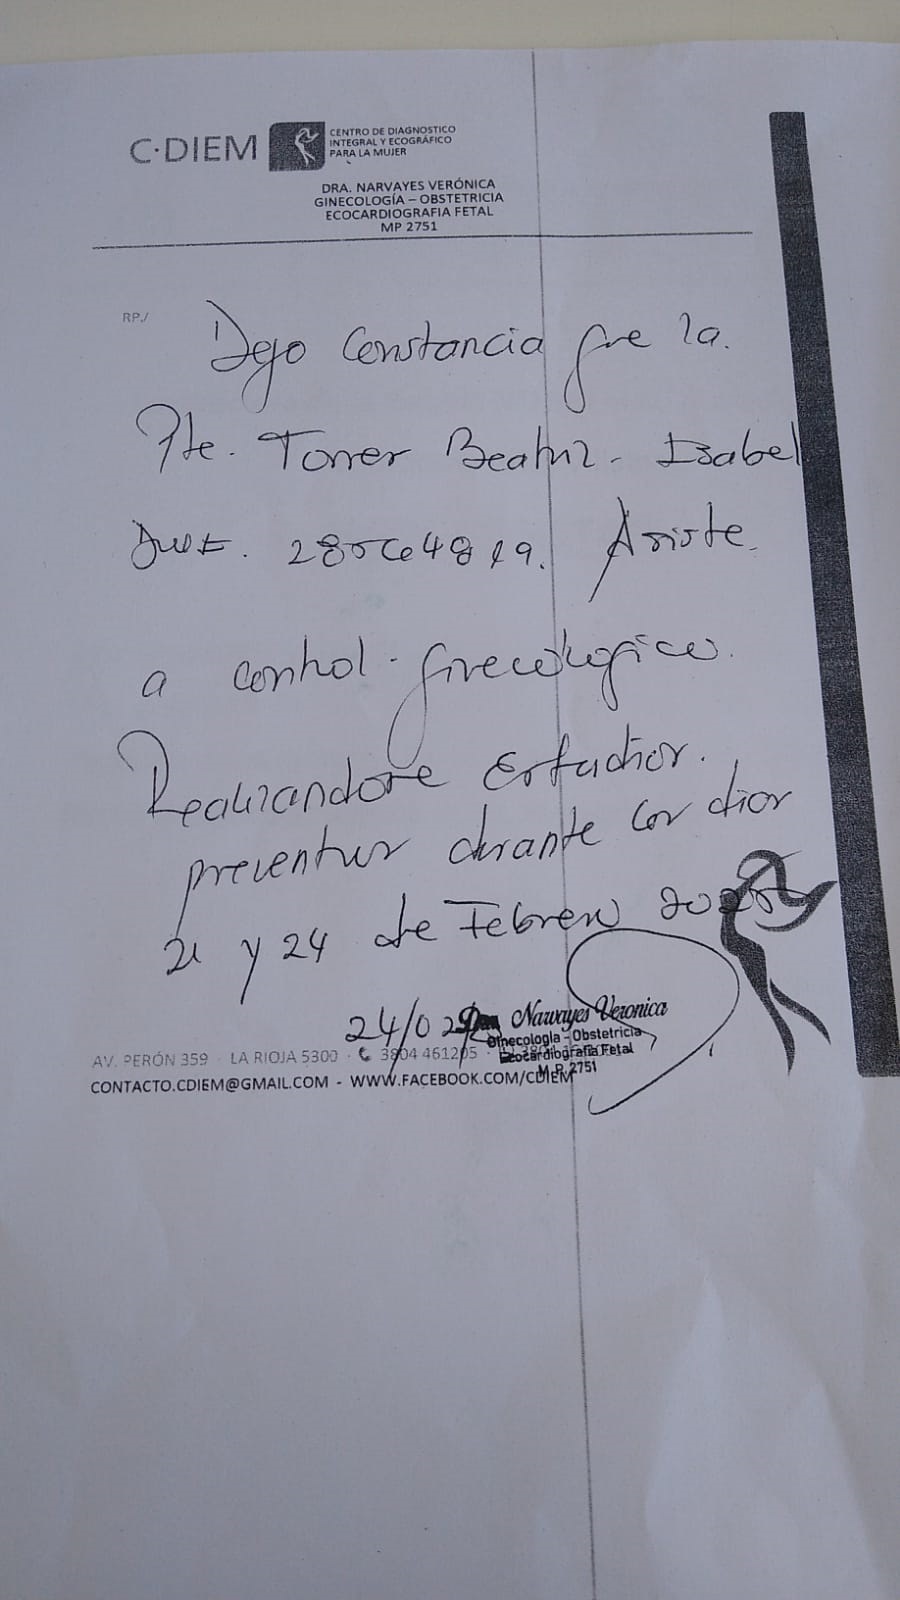 C·DIEM
CENTRO DE DIAGNOSTICO
INTEGRAL Y ECOGRÁFICO
PARA LA MUJER
DRA. NARVAYES VERÓNICA
GINECOLOGÍA – OBSTETRICIA
ECOCARDIOGRAFIA FETAL
MP 2751
RP./
Dejo Constancia que la.
Pte. Torres Beatriz - Isabel
Asiste.
a control - ginecologico.
Realizandose Estudios.
preventivos durante los dias
21 y 24 de Febrero
24/02
Dra. Narvayes Veronica
Ginecologia - Obstetricia
Ecocardiografia Fetal
M.P. 2751
AV. PERÓN 359 · LA RIOJA 5300 · 3804 461205
CONTACTO.CDIEM@GMAIL.COM - WWW.FACEBOOK.COM/CDIEM